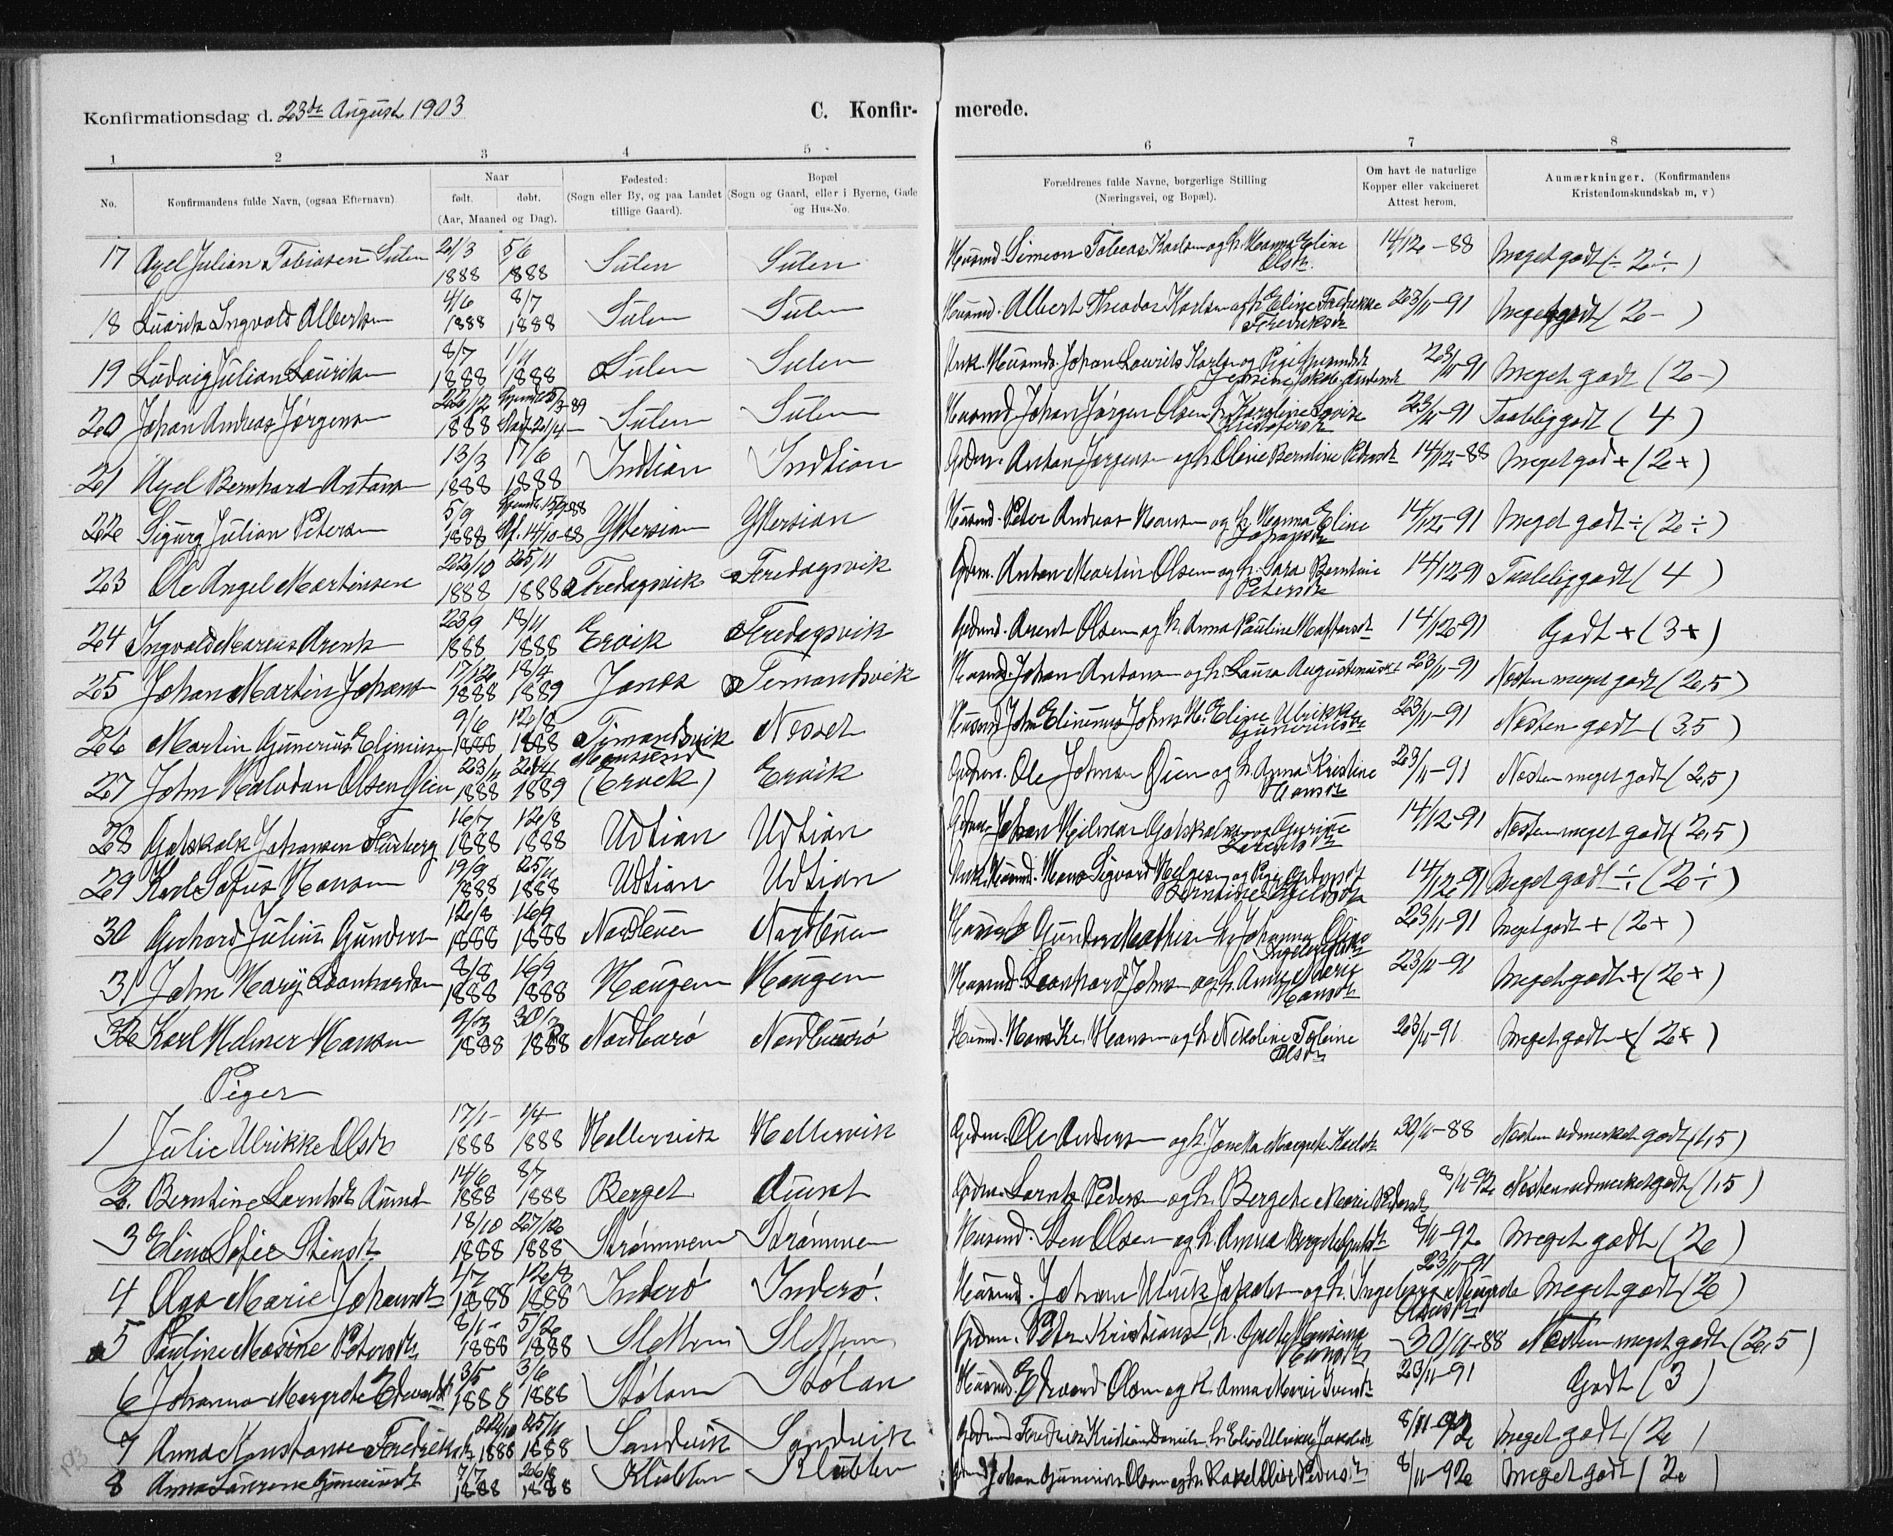 Konfirmationsdag d. 23de August 1903
C. Konfir-
merede.
1 2 3 4 5 6 7 8
No.
Konfirmandens fulde Navn, (ogsaa Efternavn)
Naar
født. døbt.
(Aar, Maaned og Dag).
Fødested:
(Sogn eller By, og paa Landet
tillige Gaard).
Bopæl
(Sogn og Gaard, eller i Byerne, Gade
og Hus-No.
Forældrenes fulde Navne, borgerlige Stilling
(Næringsvei, og Bopæl).
Om havt de naturlige
Kopper eller vakcineret
Attest herom.
Anmærkninger. (Konfirmandens
Kristendomskundskab m, v)
17 Axel Julian Tobiasen Sulen 21/3 1888 5/6 1888 Sulen Sulen Husmd. Simeon Tobias Karlsen og h. Hanna Eline Olsdr. 14/12-88 Meget godt (÷ 2÷)
18 Lauritz Ingvald Alberts 4/6 1888 8/7 1888 Sulen Sulen Husmd. Albert Theodor Karlsen og h. Eline Fredrikke Fredriksdr. 23/11-91 Meget godt (2-)
19 Ludvig Julian Lauritsen 8/7 1888 1888 Sulen Sulen Unk. Husmds. Johan Laurits Karlsen og Pige 23/11-91 Meget godt (2-)
20 Johan Andreas Jørgens 22/12 1888 Sulen Sulen Husmd. Johan Jørgen Olsen h. Karoline Lovise 23/11-91 Taaleliggodt (4)
21 Axel Bernhard Antons 13/3 1888 17/6 1888 Indtian Indtian Gdm. Anton Jørgensen og h. Oline Berntine Pedersdr. 14/12-88 Meget godt + (2+)
22 Sigurg Julian Petersen 5/9 1888 14/10-88 Ytersian Ytersian Husmd. Peter Andreas Hansen og h. Hanna Eline 14/12-91 Meget godt ÷ (2÷)
23 Ole Angel Martinsen 22/10 1888 25/11 1888 Fredagsvik Fredagsvik Gdm. Anton Martin Olsen og h. Sara Berntine Petersdr. 14/12-91 Taaleliggodt (4)
24 Ingvald Marius Arents 23/9 1888 18/11 1888 Ervik Fredagsvik Gdmd. Arent Olsen og h. Anna Pauline 14/12-91 Godt + (3+)
25 Johan Martin Johans 17/12 1888 18/4 1889 Janes Timandsvik Husmd. Johan Antons og h. Laura 23/11-91 Nesten meget godt (2,5)
26 Martin Gunerius Eliniusen 9/6 1888 12/8 1888 Timandsvik Nesset Husmd. John Elinius Johns h. Eline Ulrikke Guneriusdr. 23/11-91 Nesten godt (3,5)
27 John Halvdan Olsen Øien 23/11 1888 1889 (Ervik) Ervik Gdm. Ole Johnsen Øien og h. Anna Kristine Hansdr. 23/11-91 Nesten meget godt (2,5)
28 Gotskalk Johansen Furberg 16/7 1888 12/8 1888 Udtian Udtian Gdm. Johan Hilmar Gotskalksen 14/12-91 Nesten meget godt (2,5)
29 Karl Sofus Hansen 19/9 1888 25/11 1888 Udtian Udtian Unk. Husmd. Hans Sigvard Helgesen og Pige 14/12-91 Meget godt ÷ (2÷)
30 Gerhard Julius Gunders 12/8 1888 16/9 1888 Nordbuen Nordbuen Gunder Mathisen h. Johanna Oline 23/11-91 Meget godt + (2+)
31 John Mary Leonhardsen 8/8 1888 16/9 1888 Haugen Haugen Husmd. Leonhard Johns og h. Anna Marie Hansdr. 23/11-91 Meget godt + (2+)
32 Karl Helmer Hansen 9/3 1888 30/3 1888 Husmd. Hans Kr. Hansen og h. Nikoline Olsdr. 23/11-91 Meget godt + (2+)
Piger
1 Julie Ulrikke Olsdr. 17/1 1888 1/4 1888 Hellesvik Hellesvik Gdm. Ole Anders og h. Janetta Margrete Karlsdr. 30/11-88 Nesten udmerket godt (1,5)
2. Berntine Larntsdr. Aunet 14/6 1888 8/7 1888 Berget Aunet Gdm. Larnts Peders og h. Bergete Marie Pedersdr. 8/11-92 Nesten udmerket godt (1,5)
3 Eline Sofie Stensdr. 18/10 1888 27/12 1888 Strømmen Strømmen Husmd. Sten Olsen og h. Anna Bergete 8/11-92 Meget godt (2)
4 Olga Marie Johansdr. 1/7 1888 12/8 1888 Inderø Inderø. Husmd. Johan Ulrik Jakobs og h. Ingeborg 23/11-91 Meget godt (2)
5 Pauline Masine Petersdr. 8/1 1888 5/2 1888 Slettem Slettem Gdm. Peter Kristians h. Grete Hansdr. 30/11-88 Nesten meget godt (2,5)
6 Johanna Margrete Edvardsdr. 3/5 1888 3/6 1888 Stølan Stølan Husmd. Edvard Olsen og h. Anna Marie 23/11-91 Godt (3)
7 Anna Konstanse Fredriksdr. 22/10 1888 25/11 1888 Sandvik Sandvik Gdmd. Fredrik Kristian Daniels h. Elise Ulrikke Jakobsdr. 8/11-92 Meget godt (2)
8 Anna Laurense Guneriusdr. 7/7 1888 26/8 1888 Klubben Klubben Johan Gunerius Olsen og h. Rakel Oline Pedersdr. 8/11-92 Meget godt (2)